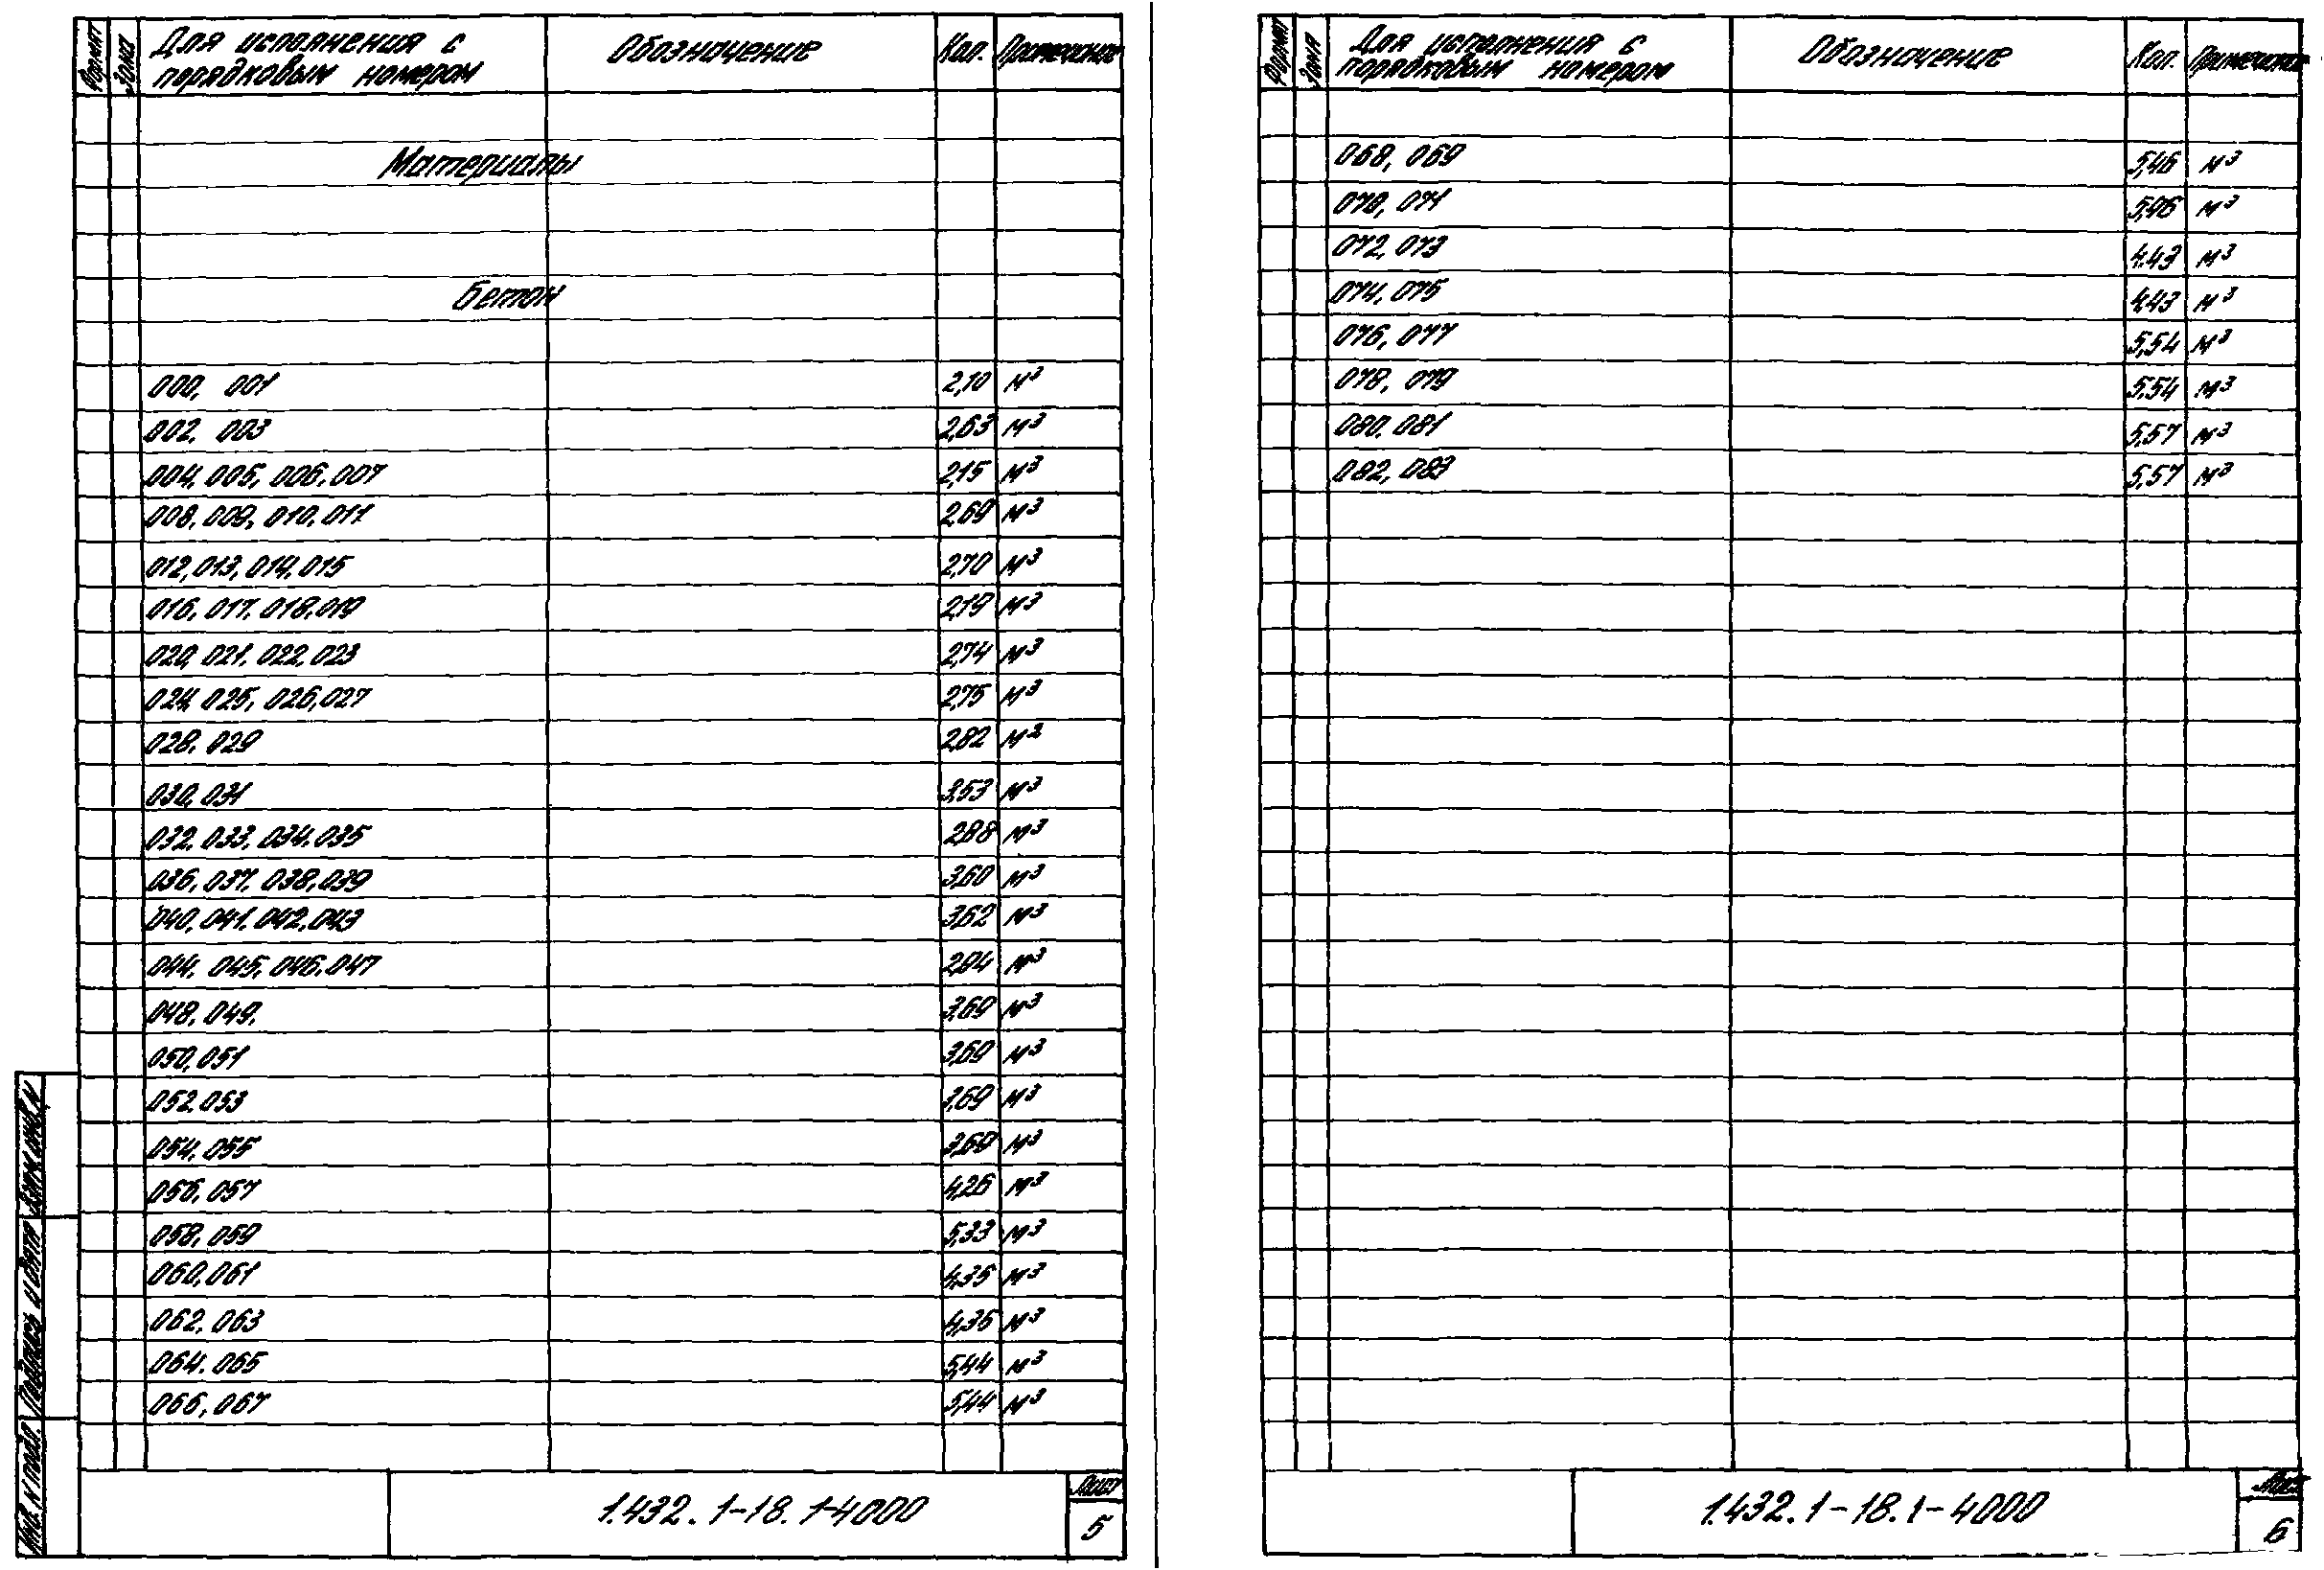 Формат Зона Для исполнения с порядковым номером Обозначение Кол. Примечание
Материалы
Бетон
000, 001 2,10 м³
002, 003 2,63 м³
004, 005, 006, 007 2,15 м³
008, 009, 010, 011 2,69 м³
012, 013, 014, 015 2,70 м³
016, 017, 018, 019 2,19 м³
020, 021, 022, 023 2,74 м³
024, 025, 026, 027 2,75 м³
028, 029 2,82 м³
030, 031 3,53 м³
032, 033, 034, 035 2,88 м³
036, 037, 038, 039 3,60 м³
040, 041, 042, 043 3,62 м³
044, 045, 046, 047 2,94 м³
048, 049. 3,69 м³
050, 051 3,69 м³
052, 053 3,69 м³
054, 055 3,69 м³
056, 057 4,26 м³
058, 059 5,33 м³
060, 061 4,35 м³
062, 063 4,35 м³
064, 065 5,44 м³
066, 067 5,44 м³
Инв. N подл. Подпись и дата Взам. инв. N
1.432.1-18.1-4000
Лист
5
Формат Зона Для исполнения с порядковым номером Обозначение Кол. Примечание
068, 069 5,46 м³
070, 071 5,46 м³
072, 073 4,43 м³
074, 075 4,43 м³
076, 077 5,54 м³
078, 079 5,54 м³
080, 081 5,57 м³
082, 083 5,57 м³
1.432.1-18.1-4000
Лист
6